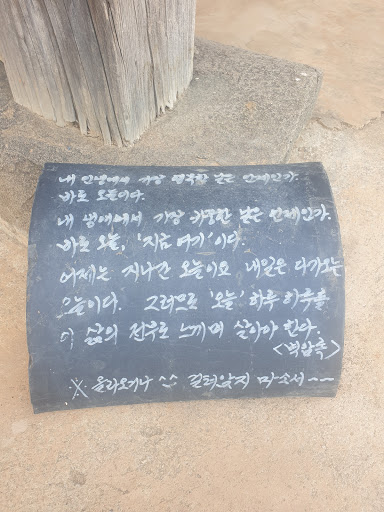 내 인생에서 가장 행복한 날은 언제인가.
바로 오늘이다.
내 생애에서 가장 귀중한 날은 언제인가.
바로 오늘, '지금 여기'이다.
어제는 지나간 오늘이요 내일은 다가오는
오늘이다. 그러므로 '오늘' 하루 하루를
이 삶의 전부로 느끼며 살아야 한다.
<벽암록>
※ 올라오거나 ^^ 걸터앉지 마소서~~